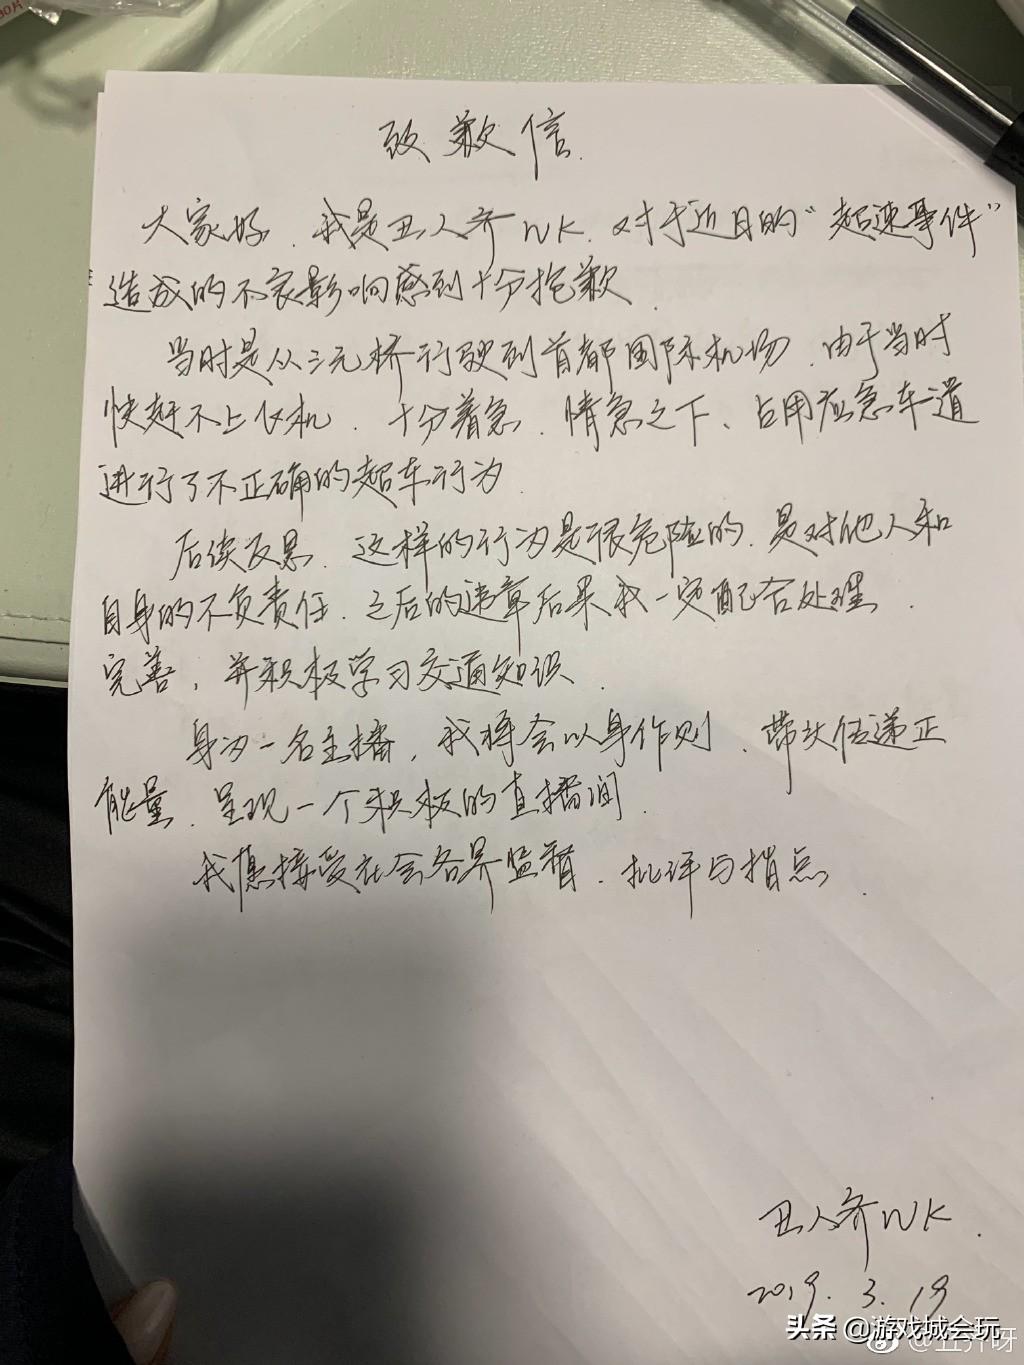 致歉信.
大家好.我是丑人齐WK.对于近日的“超速事件”
造成的不良影响感到十分抱歉.
当时是从三元桥行驶到首都国际机场.由于当时
快赶不上飞机.十分着急.情急之下、占用应急车道
进行了不正确的超车行为.
后续反思.这样的行为是很危险的.是对他人和
自身的不负责任.之后的违章后果我一定配合处理.
完善,并积极学习交通知识.
身为一名主播,我将会以身作则.带头传递正
能量.呈现一个积极的直播间.
我愿接受社会各界监督.批评与指点.
丑人齐WK.
2019.3.19
头条@游戏城会玩
80片